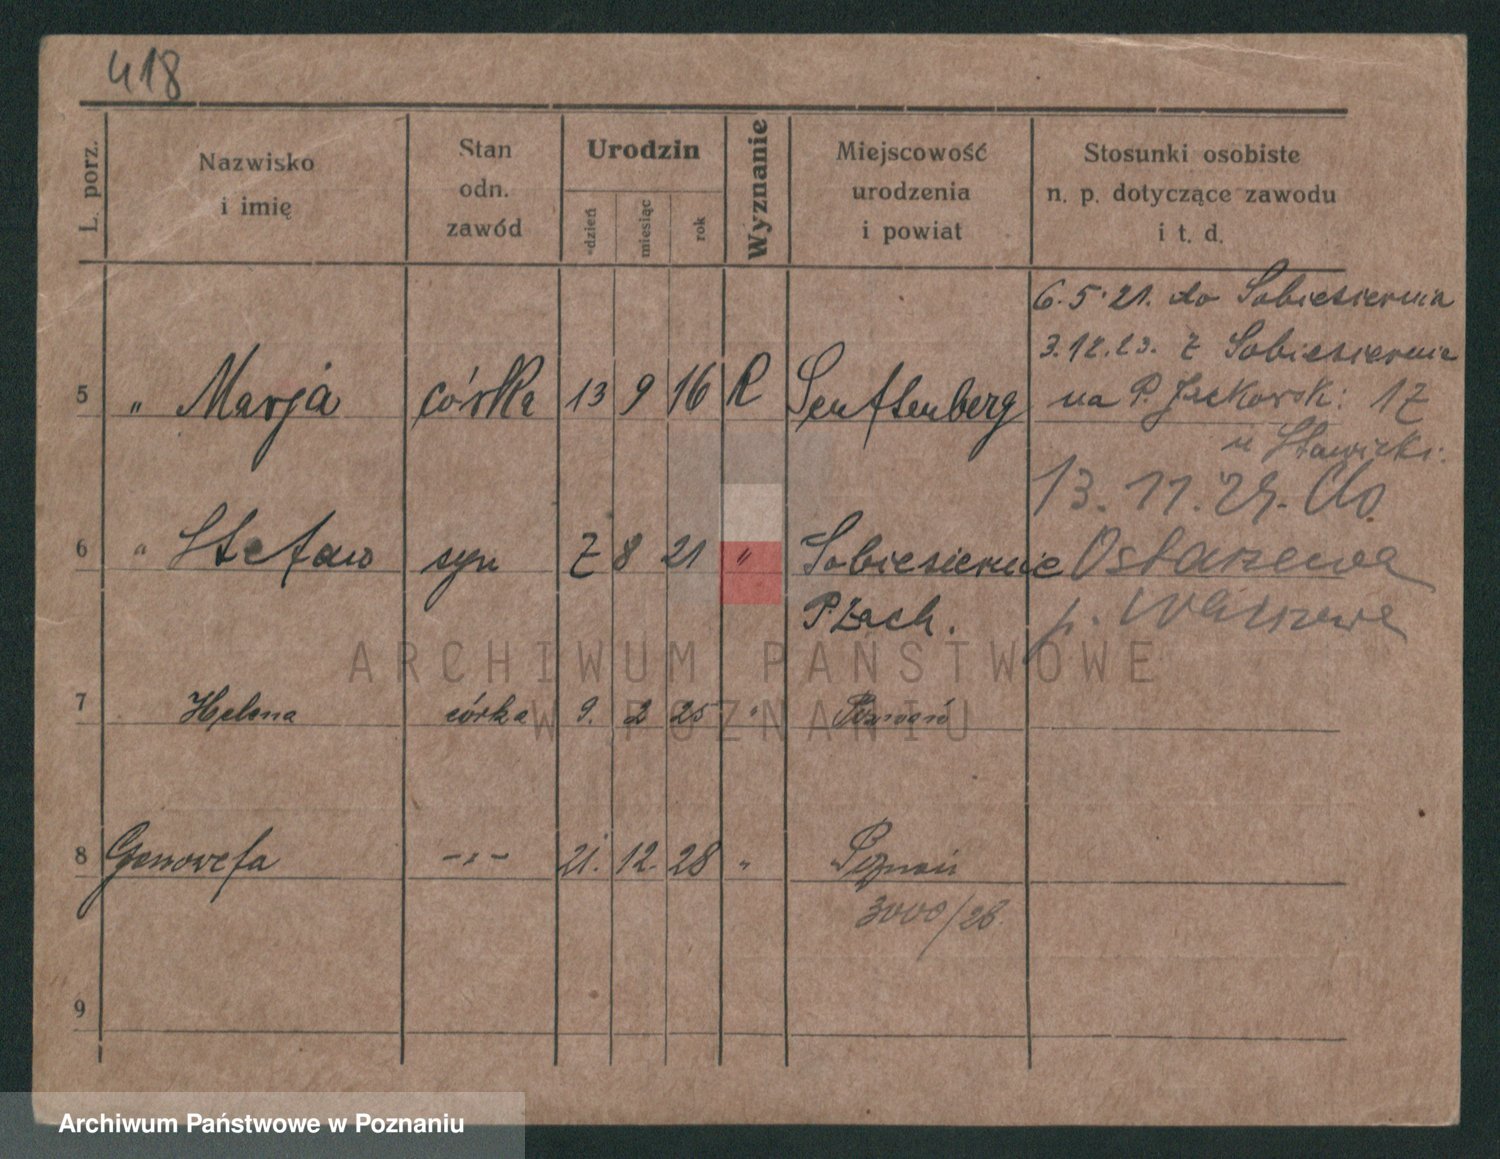 418
L. porz.
Nazwisko
i imię
Stan
odn.
zawód
Urodzin
dzień
miesiąc
rok
Wyznanie
Miejscowość
urodzenia
i powiat
Stosunki osobiste
n. p. dotyczące zawodu
i t. d.
6.5.21. do Sobiesiernia
3.12.23. z Sobiesiernie
5 " Marja córka 13 9 16 R Senftenberg na P. Jackowsk: 17
u Stawicki:
13.11.29. do
6 " Stefan syn 7 8 21 " Sobiesiernie Ostarzewa
P. Zach. p.
7 Helena córka 9. 2 25 " Poznań
8 Genowefa -"- 21. 12. 28 " Poznań
3000/28.
9
ARCHIWUM PAŃSTWOWE
W POZNANIU
Archiwum Państwowe w Poznaniu